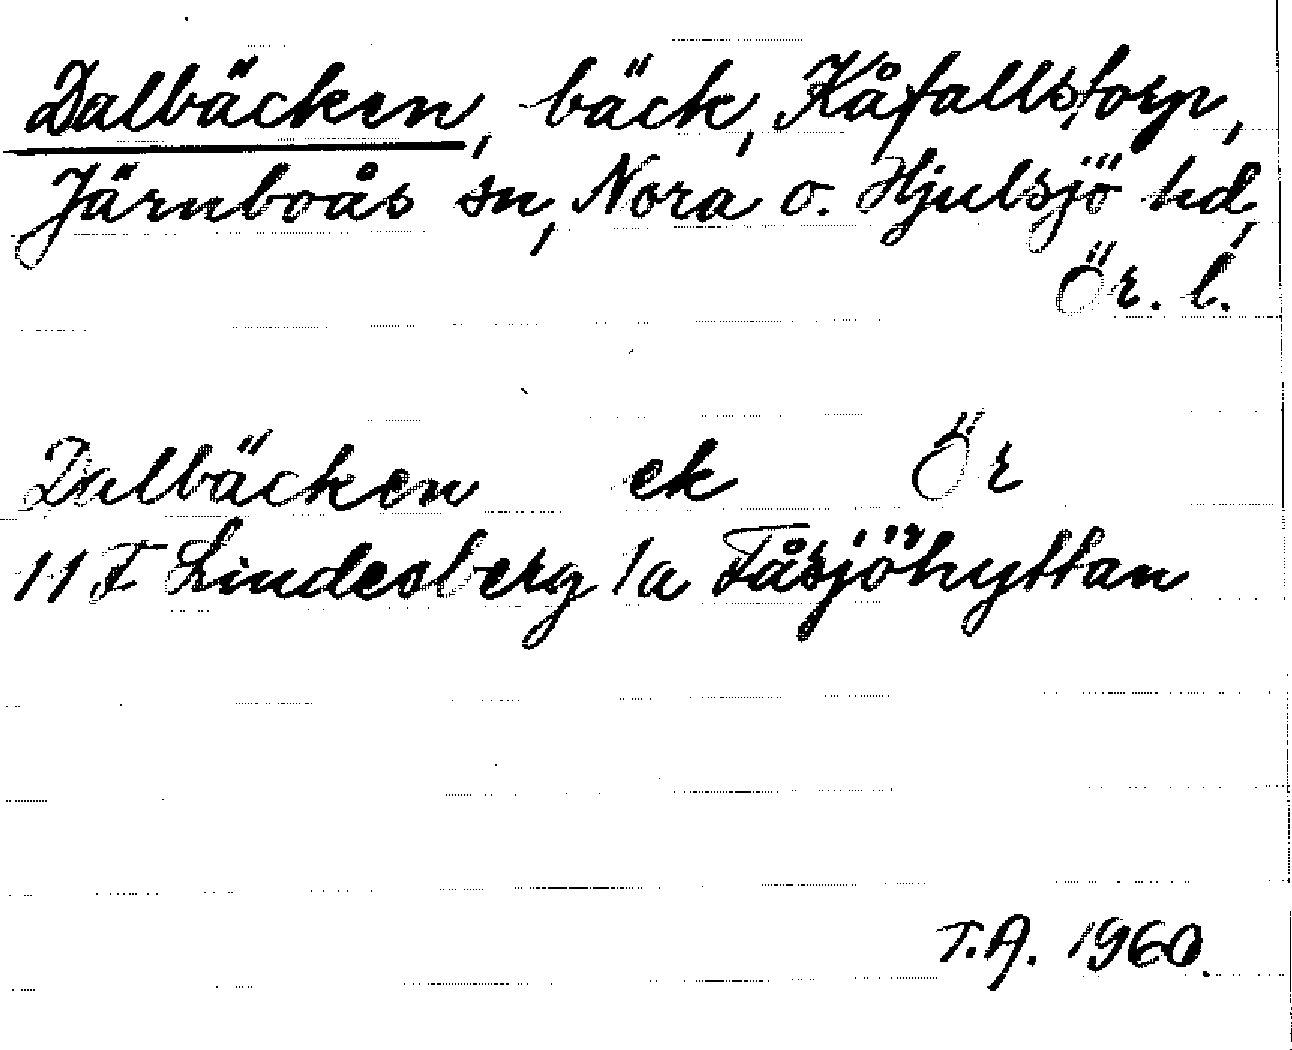 Dalbäcken, bäck, Kåfallstorp,
Järnboås sn, Nora o. Hjulsjö hd,
Ör. l.
Dalbäcken ek Ör
11 F Lindesberg 1a Fåsjöhyttan
T.A. 1960.